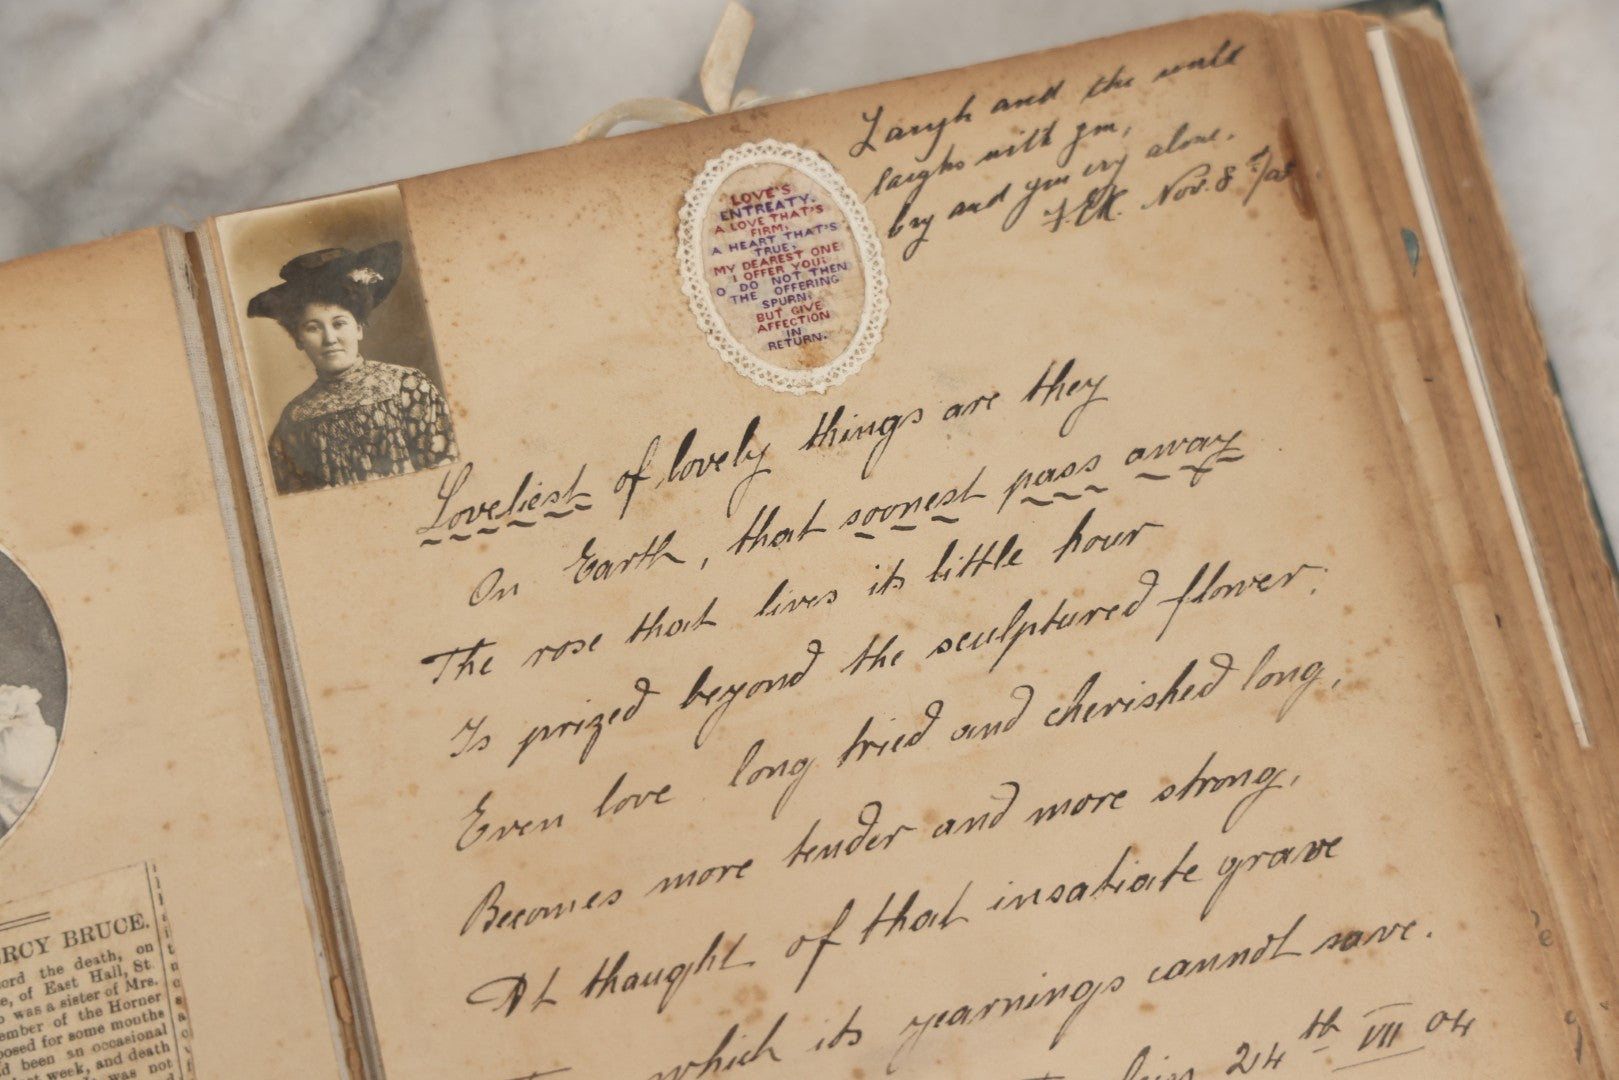 RCY BRUCE.
ord the death, on
e, of East Hall, St.
was a sister of Mrs.
ember of the Horner
posed for some months
d been an occasional
last week, and death
was not
LOVE'S
ENTREATY.
A LOVE THAT'S
FIRM;
A HEART THAT'S
TRUE;
MY DEAREST ONE
I OFFER YOU:
O DO NOT THEN
THE OFFERING
SPURN;
BUT GIVE
AFFECTION
IN
RETURN.
Laugh and the world
laughs with you,
Cry and you cry alone.
Nov. 8
Loveliest of lovely things are they
On Earth, that soonest pass away
The rose that lives its little hour
Is prized beyond the sculptured flower:
Even love long tried and cherished long,
Becomes more tender and more strong,
At thought of that insatiate grave
which its yearnings cannot save.
24th VII 04